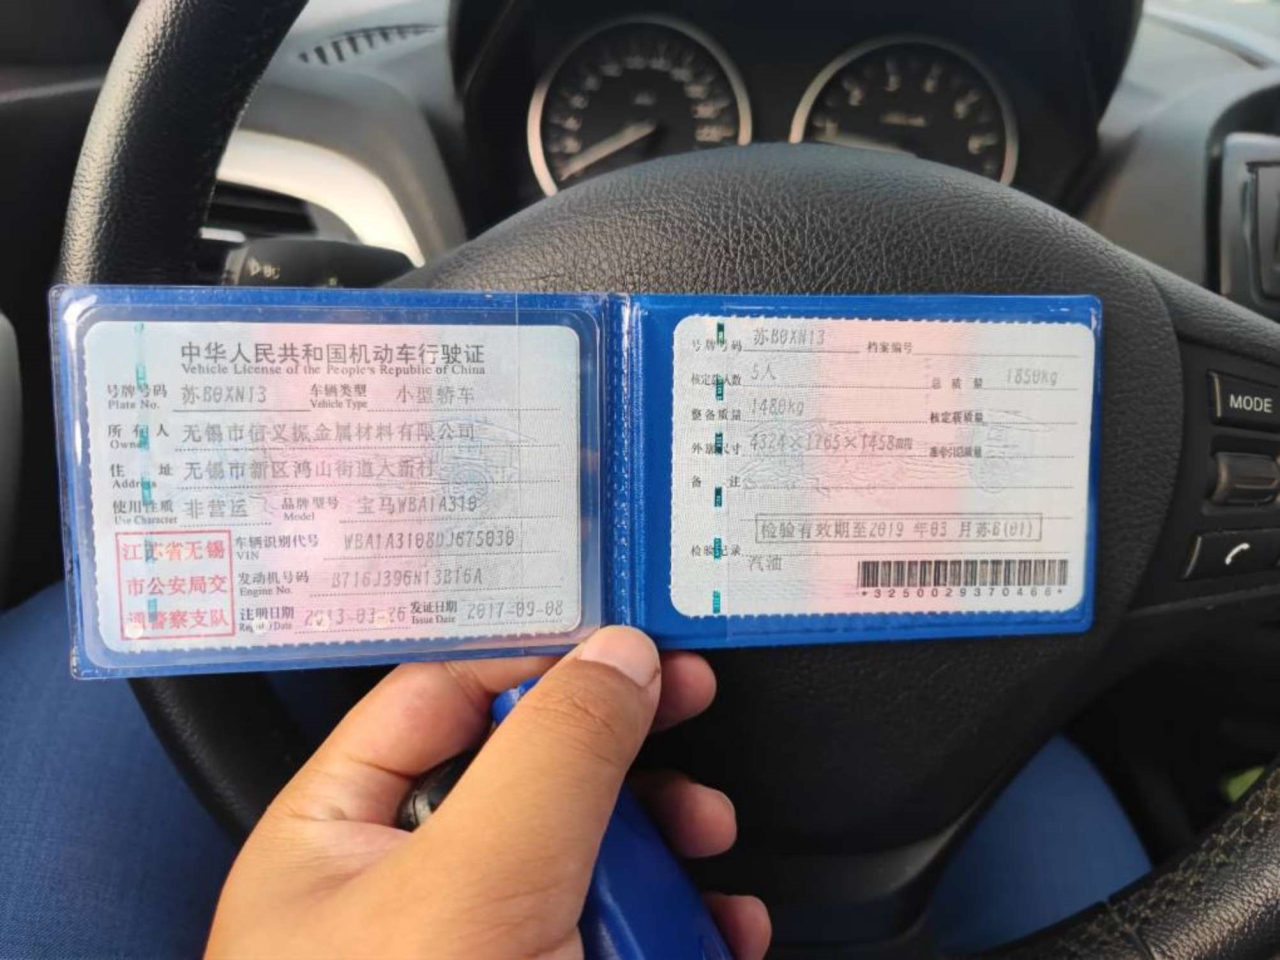 中华人民共和国机动车行驶证
Vehicle License of the People's Republic of China
号牌号码 苏B0XN13 车辆类型 小型轿车
Plate No. Vehicle Type
所有人 无锡市信义振金属材料有限公司
Owner
住址 无锡市新区鸿山街道大新村
Address
使用性质 非营运 品牌型号 宝马WBA1A310
Use Character Model
江苏省无锡
市公安局交
通警察支队
车辆识别代号
VIN
发动机号码 B716J396N13B16A
Engine No.
注册日期 2013-03-26 发证日期 2017-09-08
Register Date Issue Date
号牌号码 苏B0XN13 档案编号
核定载人数 5人 总质量 1850kg
整备质量 1480kg 核定载质量
外廓尺寸 4324×1765×1458mm 准牵引总质量
备注
检验有效期至2019 年03 月苏B(01)
检验记录
汽油
*3250029370466*
MODE